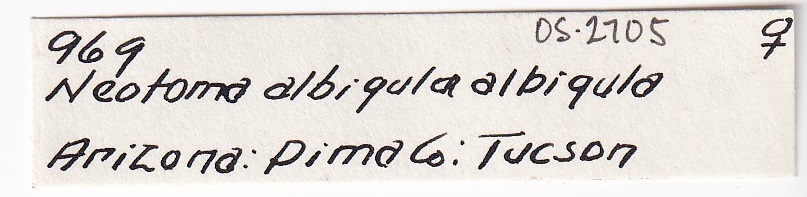 969 OS.2705 ♀
Neotoma albigula albigula
Arizona: Pima Co: Tucson